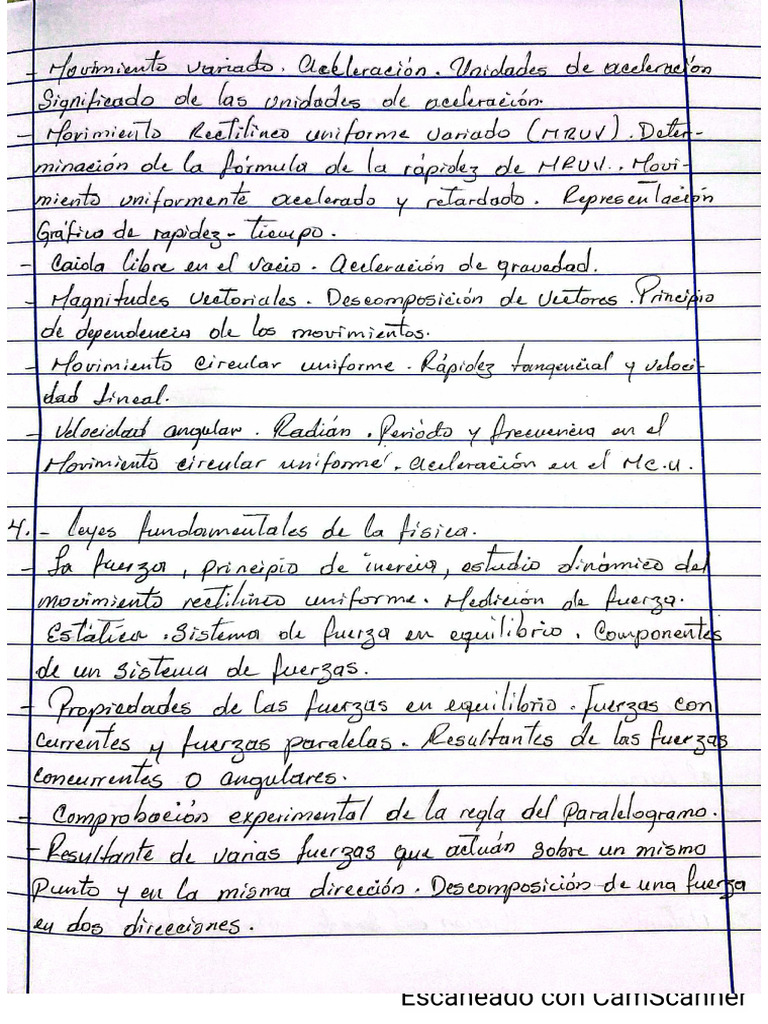 - Movimiento variado. Aceleración. Unidades de aceleración
Significado de las unidades de aceleración.
- Movimiento Rectilineo uniforme variado (MRUV). Deter-
minación de la fórmula de la rápidez de MRUV.. Movi-
miento uniformente acelerado y retardado. Representación
Gráfica de rapidez - tiempo.
- Caida libre en el vacio. Aceleración de gravedad.
- Magnitudes vectoriales. Descomposición de vectores. Principio
de dependencia de los movimientos.
- Movimiento circular uniforme. Rápidez tangencial y veloci-
dad lineal.
- Velocidad angular. Radián. Periódo y frecuencia en el
Movimiento circular uniforme. Aceleración en el M.C.U.
4. - Leyes fundamentales de la física.
- La fuerza, principio de inercia, estudio dinámico del
movimiento rectilineo uniforme. Medición de fuerza.
Estática. Sistema de fuerza en equilibrio. Componentes
de un sistema de fuerzas.
- Propiedades de las fuerzas en equilibrio. Fuerzas con
currentes y fuerzas paralelas. Resultantes de las fuerzas
concurrentes o angulares.
- Comprobación experimental de la regla del Paralelogramo.
- Resultante de varias fuerzas que actuán sobre un mismo
punto y en la misma dirección. Descomposición de una fuerza
en dos direcciones.
Escaneado con CamScanner